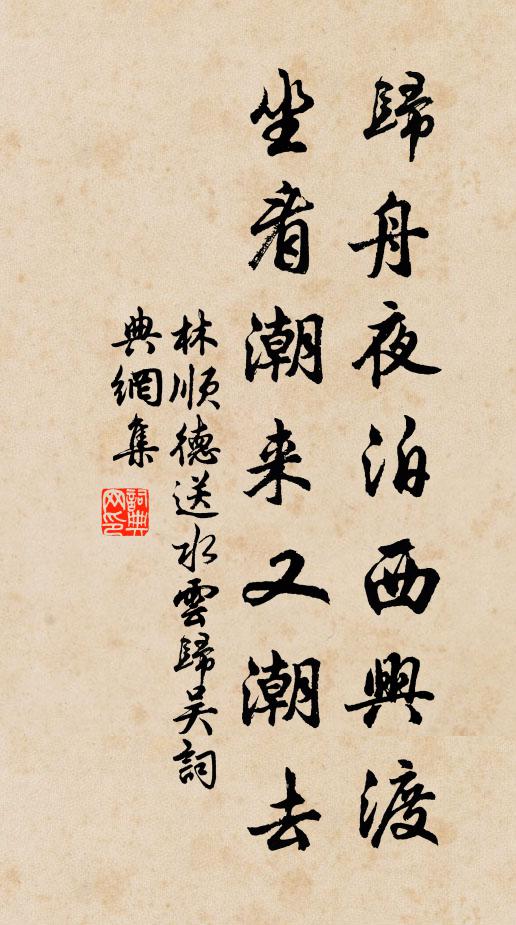 歸舟夜泊西興渡
坐看潮来又潮去
林順德送水雲歸吴詞
典網集
詞典網印